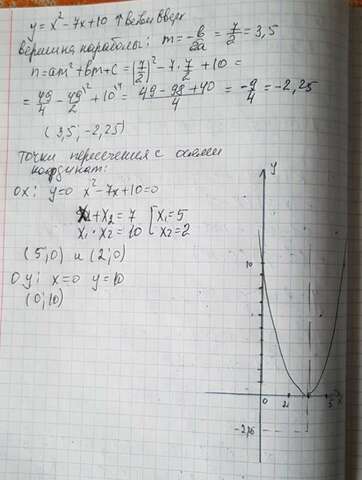 y = x² - 7x + 10 ↑ ветви вверх
вершина параболы: m = -b/2a = 7/2 = 3,5
n = am² + bm + c = (7/2)² - 7·7/2 + 10 =
= 49/4 - 49/2 + 10 = 49 - 98 + 40/4 = -9/4 = -2,25
(3,5; -2,25)
точки пересечения с осями
координат:
ox: y=0 x² - 7x + 10 = 0
x1 + x2 = 7 [x1 = 5
x1 · x2 = 10 x2 = 2
(5;0) и (2;0)
oy: x=0 y=10
(0;10)
y
10
0 2 5 x